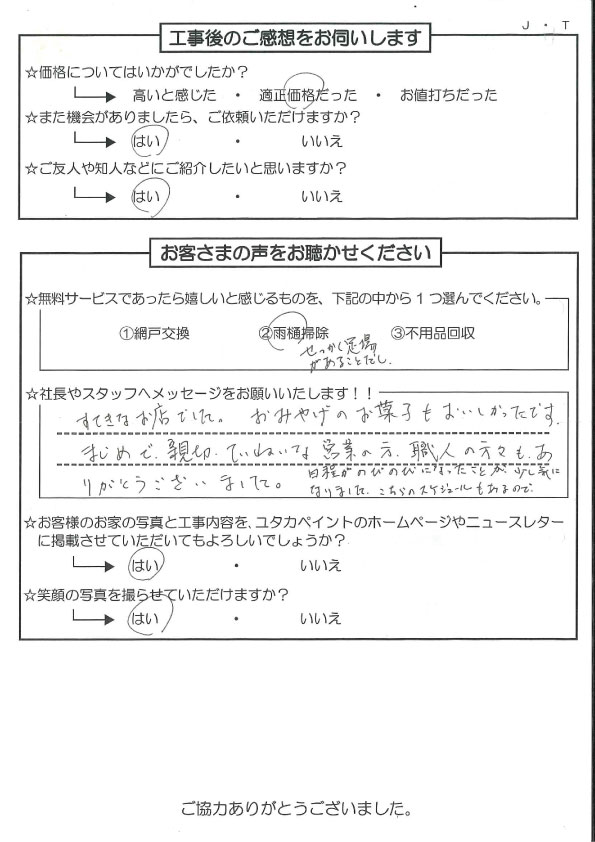 J ・ T
工事後のご感想をお伺いします
☆価格についてはいかがでしたか？
高いと感じた ・ 適正価格だった ・ お値打ちだった
☆また機会がありましたら、ご依頼いただけますか？
はい ・ いいえ
☆ご友人や知人などにご紹介したいと思いますか？
はい ・ いいえ
お客さまの声をお聴かせください
☆無料サービスであったら嬉しいと感じるものを、下記の中から１つ選んでください。
①網戸交換 ②雨樋掃除 ③不用品回収
せっかく足場
があることだし.
☆社長やスタッフへメッセージをお願いいたします！！
すてきなお店でした。 おみやげのお菓子もおいしかったです.
まじめで、親切、ていねいな 営業の方、職人の方々も、あ
りがとうございました。
日程がのびのびになったことが、少し気に
なりました。こちらのスケジュールもあるので.
☆お客様のお家の写真と工事内容を、ユタカペイントのホームページやニュースレター
に掲載させていただいてもよろしいでしょうか？
はい ・ いいえ
☆笑顔の写真を撮らせていただけますか？
はい ・ いいえ
ご協力ありがとうございました。